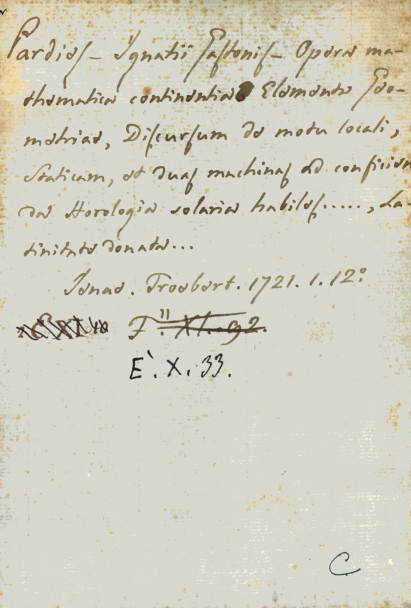 Pardies - Ignatii Gastonis - Opera ma-
thematica continentia Elementa Geo-
metriae, Discursum de motu locali,
Staticam, et duas machinas ad conficien
da Horologia solaria habiles....., La-
tinitate donata...
Jenae. 1721. 1. 12º
F". XI. 92.
E'. X. 33.
C